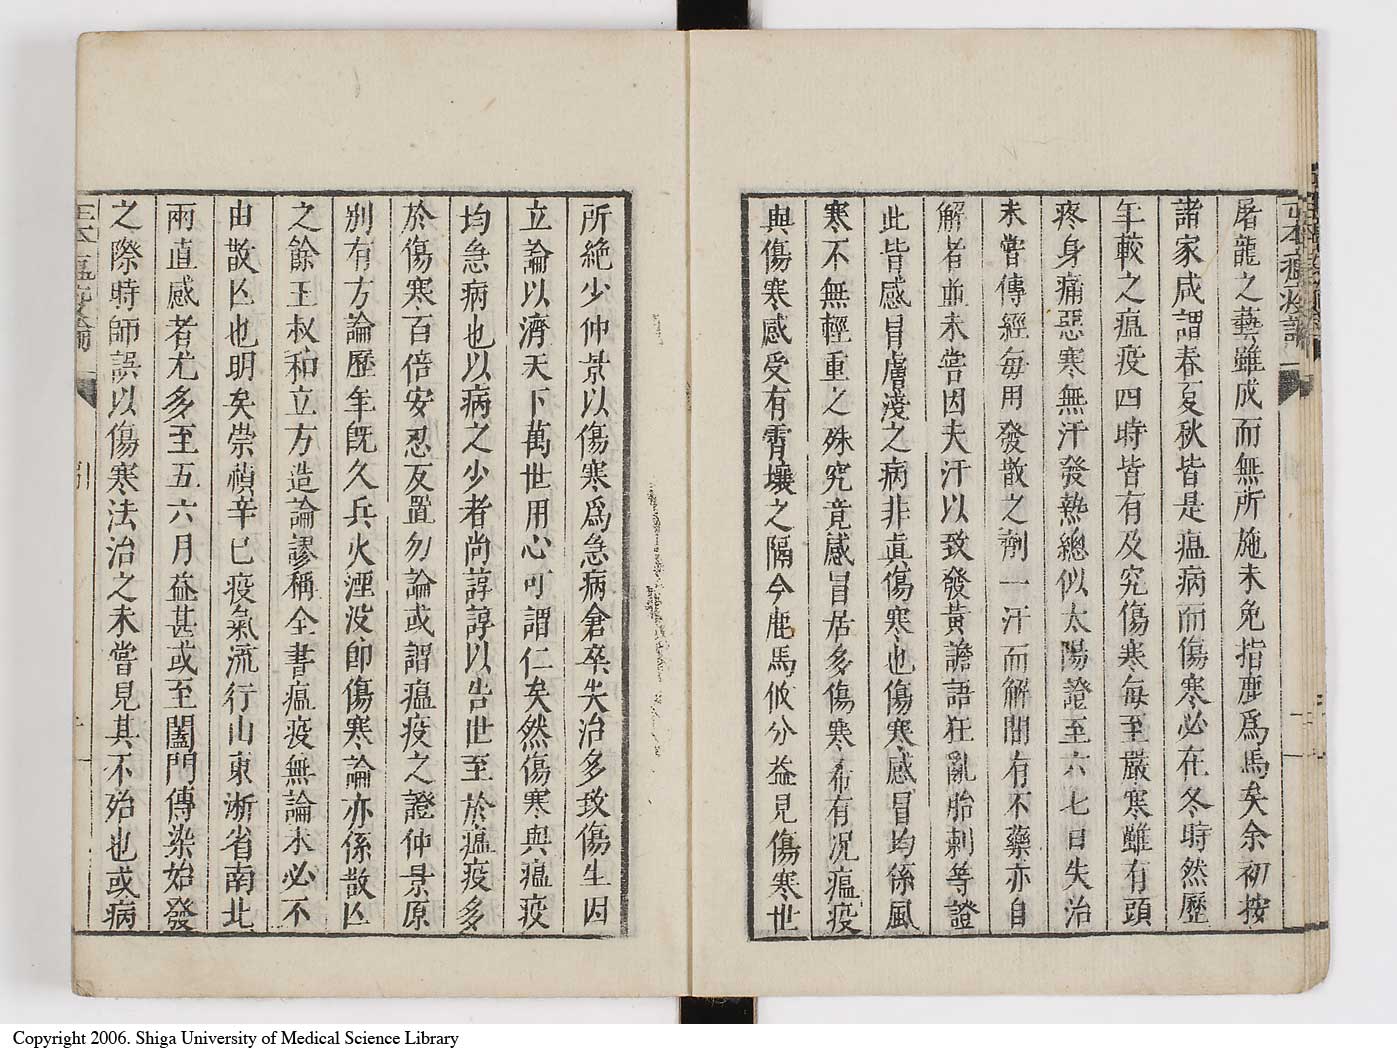 屠龍之藝雖成而無所施未免指鹿爲馬矣余初按
諸家咸謂春夏秋皆是瘟病而傷寒必在冬時然歷
年較之瘟疫四時皆有及究傷寒每至嚴寒雖有頭
疼身痛惡寒無汗發熱總似太陽證至六七日失治
未嘗傳經每用發散之劑一汗而解間有不藥亦自
解者並未嘗因夫汗以致發黃譫語狂亂胎刺等證
此皆感冒膚淺之病非眞傷寒也傷寒感冒均係風
寒不無輕重之殊究竟感冒居多傷寒希有况瘟疫
與傷寒感受有霄壤之隔今鹿馬攸分益見傷寒世
所絶少仲景以傷寒爲急病倉卒失治多致傷生因
立論以濟天下萬世用心可謂仁矣然傷寒與瘟疫
均急病也以病之少者尚諄諄以告世至於瘟疫多
於傷寒百倍安忍反置勿論或謂瘟疫之證仲景原
別有方論歷年旣久兵火湮沒卽傷寒論亦係散亾
之餘王叔和立方造論謬稱全書瘟疫無論未必不
由散亾也明矣崇禎辛巳疫氣流行山東浙省南北
兩直感者尤多至五六月益甚或至闔門傳染始發
之際時師誤以傷寒法治之未嘗見其不殆也或病
Copyright 2006. Shiga University of Medical Science Library